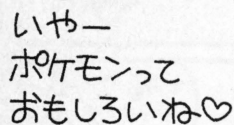 いやー
ポケモンって
おもしろいね♡